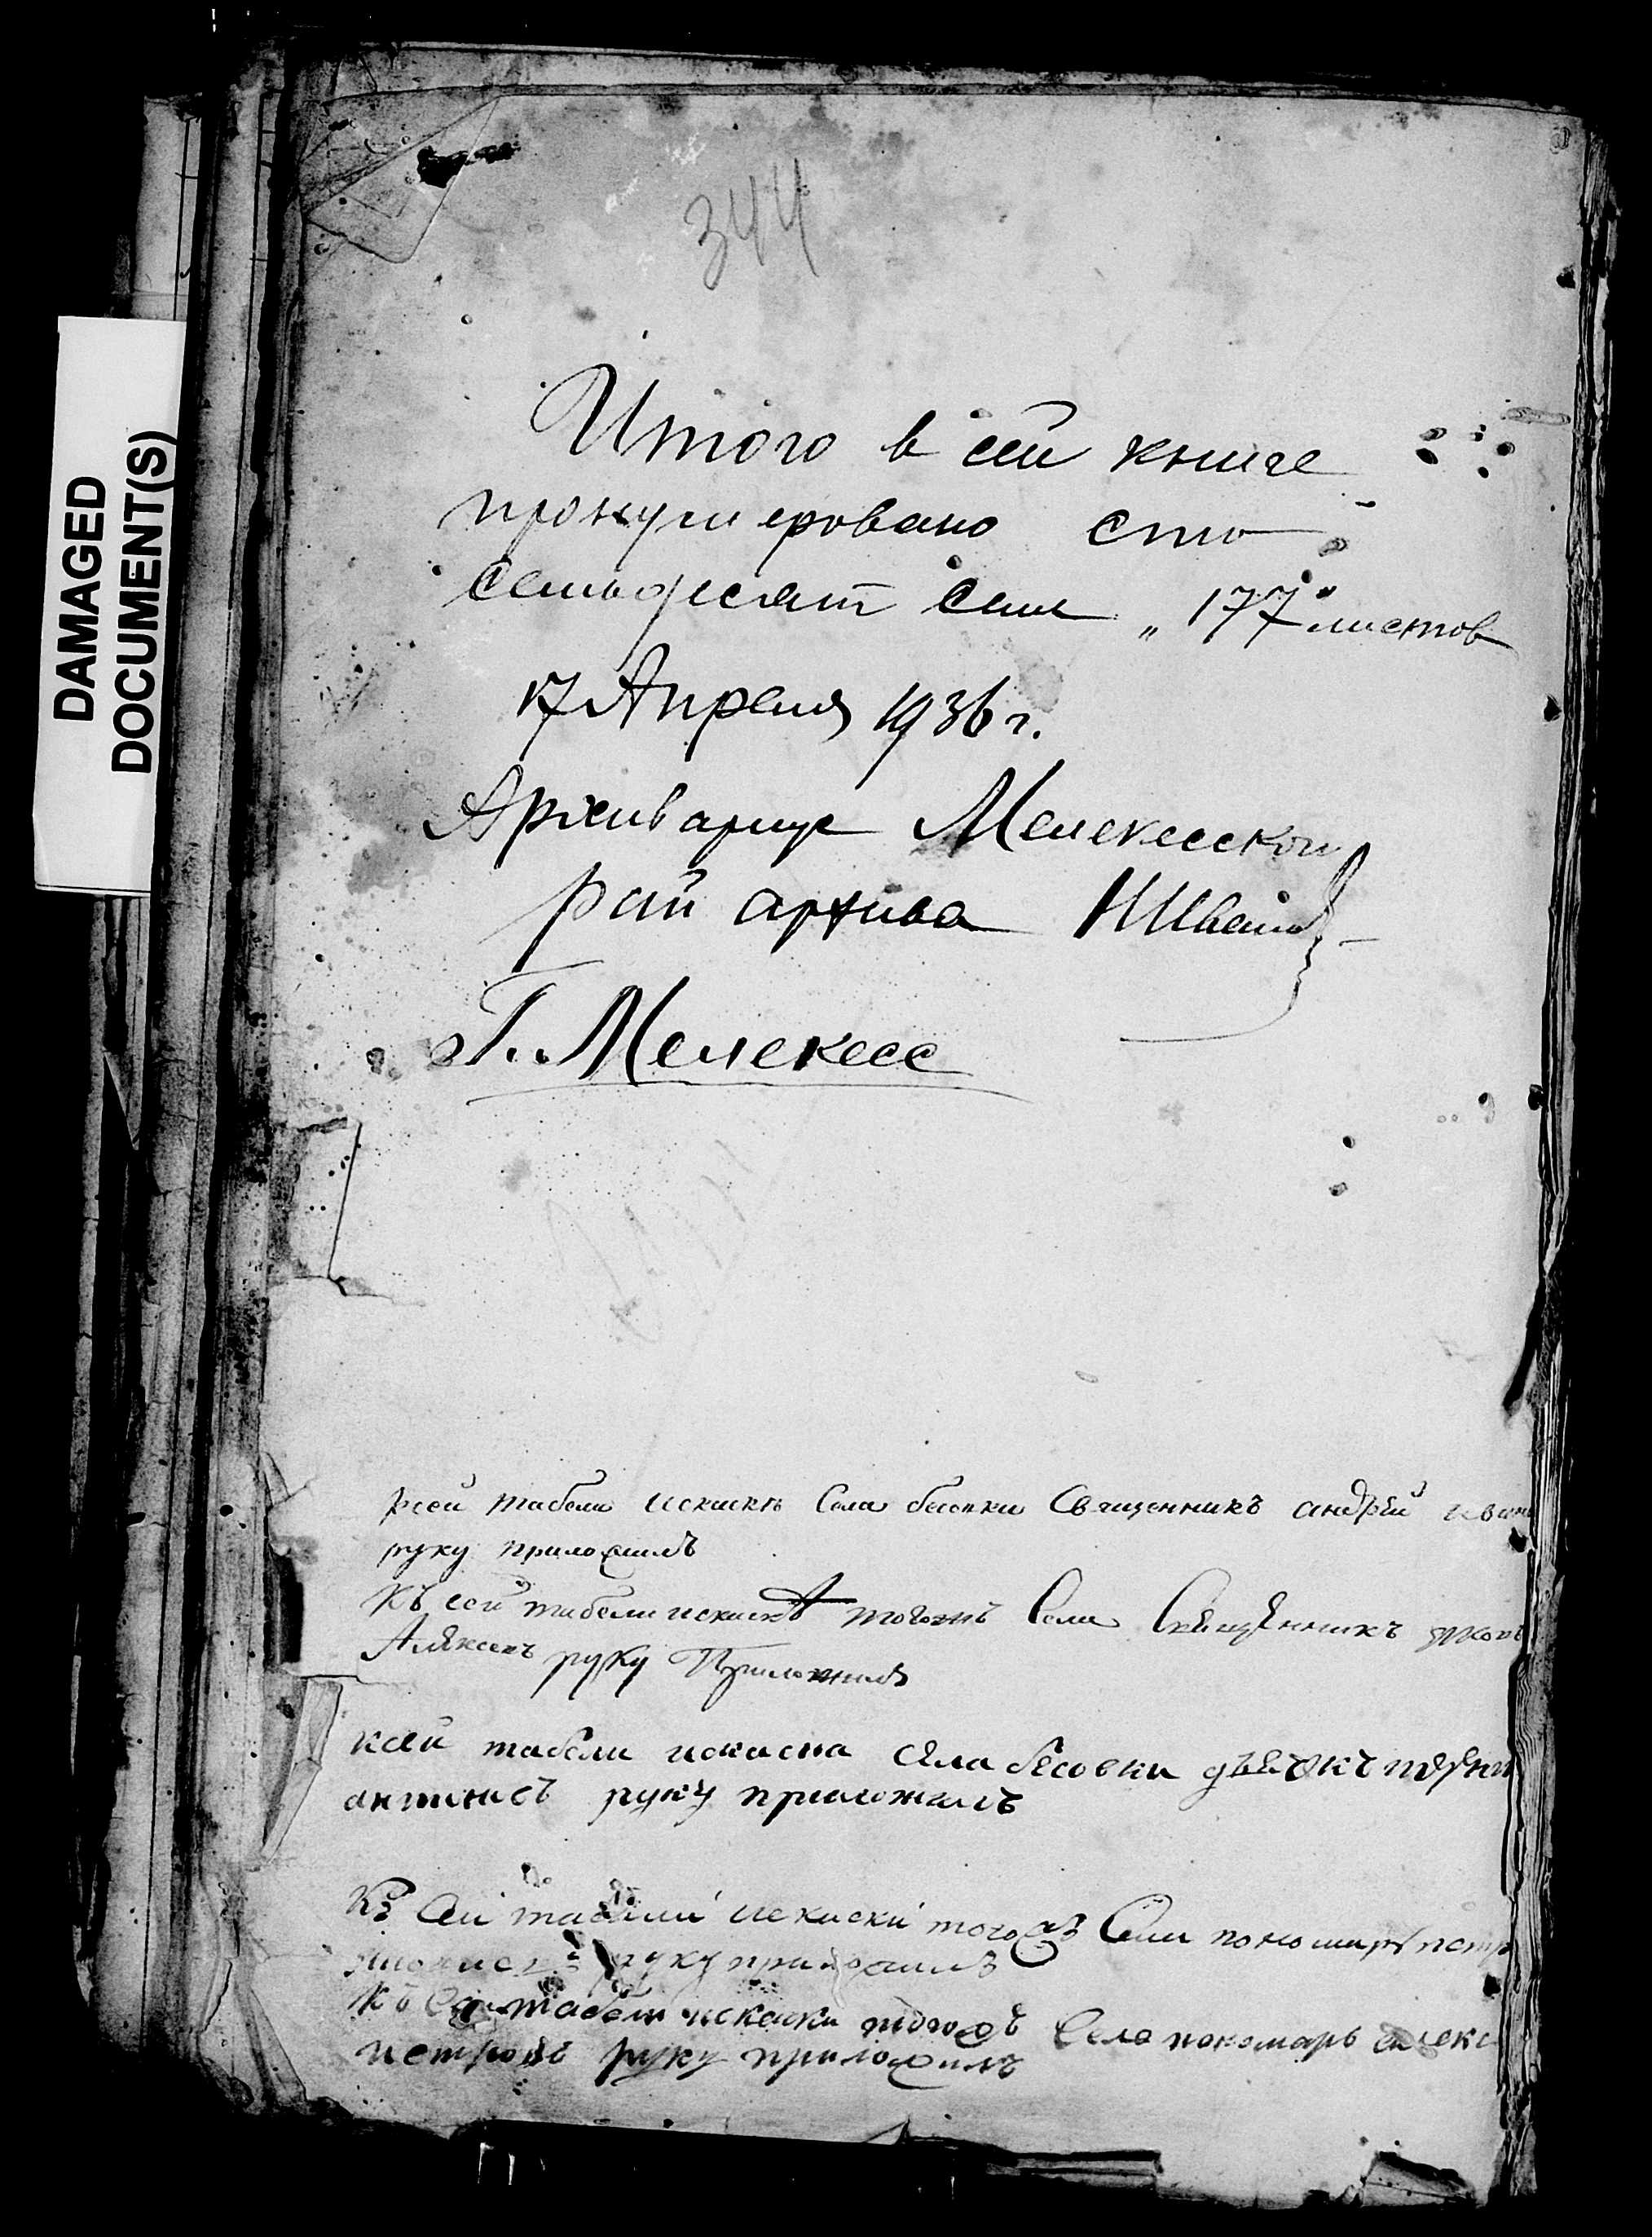 DAMAGED
DOCUMENT(S)
344
Итого в сей книге
пронумеровано сто
семьдесят семь „177" листов
17 Апреля 1936 г.
Архивариус Мелекесского
рай архива НИванов
г. Мелекесс
сей табели искаски села бесовки Священникъ андрѣй иван
руку приложилъ
Къ сей табели искаскѣ тогожъ Села Священникъ
Алексеевъ руку Приложилъ
к сей табели искаска села бесовки дьячокъ
антоновъ руку приложилъ
Къ сей табели искаски тогожъ Села пономарь петр
руку приложилъ
Къ сей табели искаски тогожъ села пономарь алекс
петровъ руку приложилъ